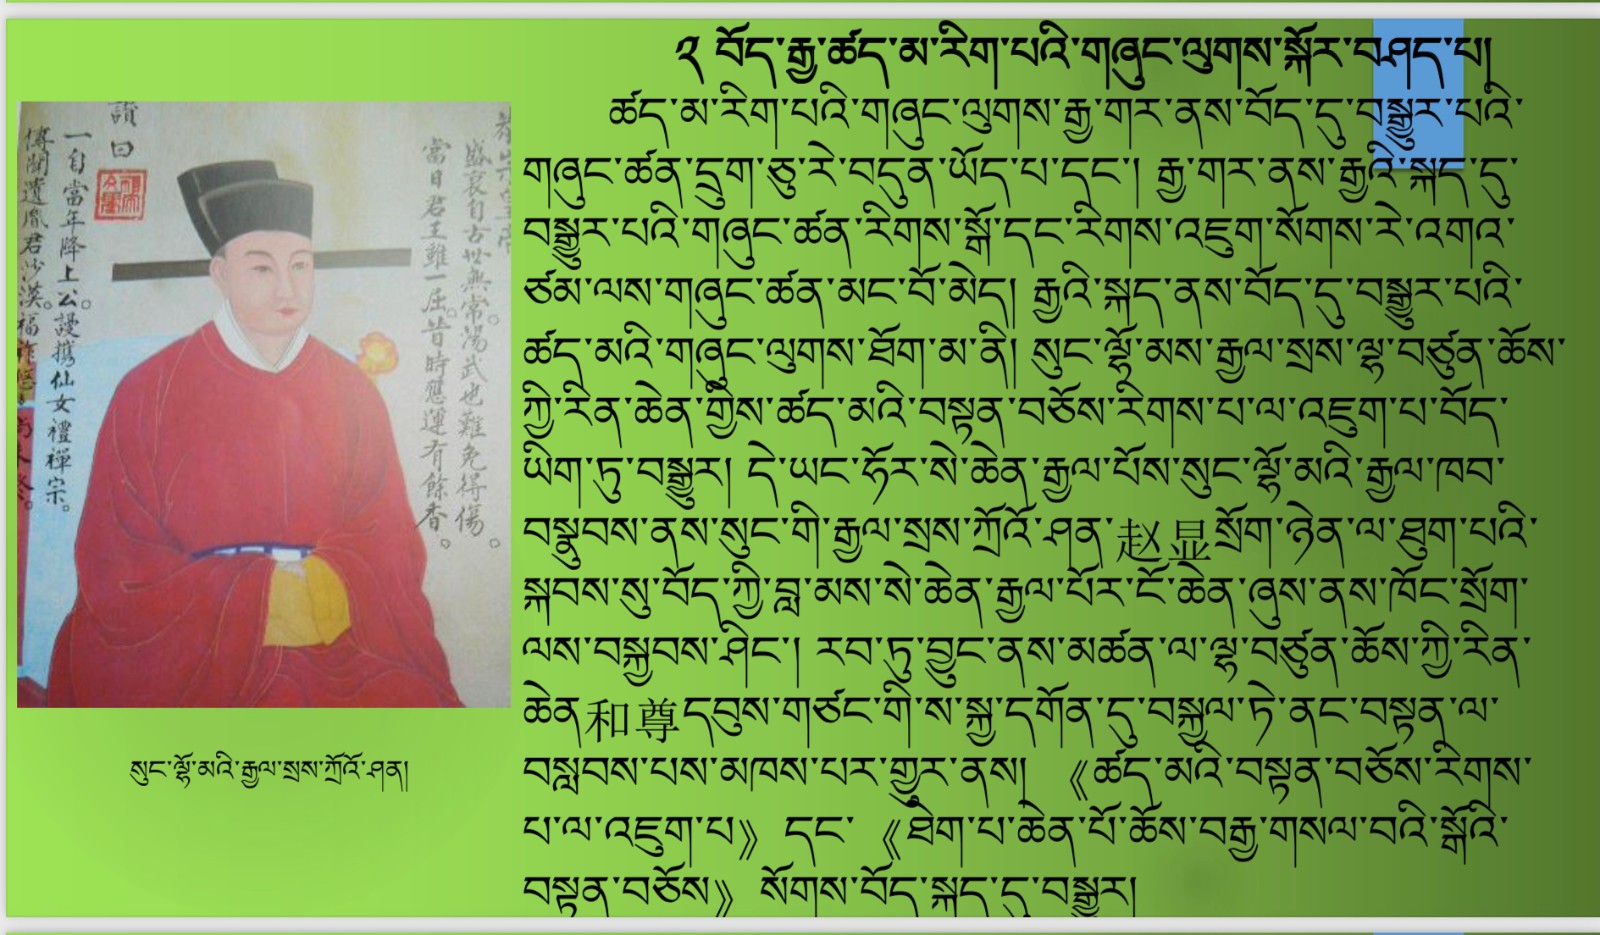 ༢ བོད་རྒྱ་ཚད་མ་རིག་པའི་གཞུང་ལུགས་སྐོར་བཤད་པ།
ཚད་མ་རིག་པའི་གཞུང་ལུགས་རྒྱ་གར་ནས་བོད་དུ་བསྒྱུར་པའི་
གཞུང་ཚན་དྲུག་ཅུ་རེ་བདུན་ཡོད་པ་དང་། རྒྱ་གར་ནས་རྒྱའི་སྐད་དུ་
བསྒྱུར་པའི་གཞུང་ཚན་རིགས་སྒོ་དང་རིགས་འཇུག་སོགས་རེ་འགའ་
ཙམ་ལས་གཞུང་ཚན་མང་བོ་མེད། རྒྱའི་སྐད་ནས་བོད་དུ་བསྒྱུར་པའི་
ཚད་མའི་གཞུང་ལུགས་ཐོག་མ་ནི། སུང་ལྷོ་མས་རྒྱལ་སྲས་ལྷ་བཙུན་ཆོས་
ཀྱི་རིན་ཆེན་གྱིས་ཚད་མའི་བསྟན་བཅོས་རིགས་པ་ལ་འཇུག་པ་བོད་
ཡིག་ཏུ་བསྒྱུར། དེ་ཡང་ཧོར་སེ་ཆེན་རྒྱལ་པོས་སུང་ལྷོ་མའི་རྒྱལ་ཁབ་
བསྣུབས་ནས་སུང་གི་རྒྱལ་སྲས་ཀྲོའོ་ཤན་赵显སྲོག་ཉེན་ལ་ཐུག་པའི་
སྐབས་སུ་བོད་ཀྱི་བླ་མས་སེ་ཆེན་རྒྱལ་པོར་ངོ་ཆེན་ཞུས་ནས་ཁོང་སྲོག་
ལས་བསྐྱབས་ཤིང་། རབ་ཏུ་བྱུང་ནས་མཚན་ལ་ལྷ་བཙུན་ཆོས་ཀྱི་རིན་
ཆེན和尊དབུས་གཙང་གི་ས་སྐྱ་དགོན་དུ་བསྐྱལ་ཏེ་ནང་བསྟན་ལ་
བསླབས་པས་མཁས་པར་གྱུར་ནས། 《ཚད་མའི་བསྟན་བཅོས་རིགས་
པ་ལ་འཇུག་པ》 དང་ 《ཐེག་པ་ཆེན་པོ་ཆོས་བརྒྱ་གསལ་བའི་སྒོའི་
བསྟན་བཅོས》 སོགས་བོད་སྐད་དུ་བསྒྱུར།
讚曰
一自當年降上公。謾攜仙女禮禪宗。
盛衰自古世無常。湯武也難免得傷。
當日君王雖一屈。昔時應運有餘香。
སུང་ལྷོ་མའི་རྒྱལ་སྲས་ཀྲོའོ་ཤན།